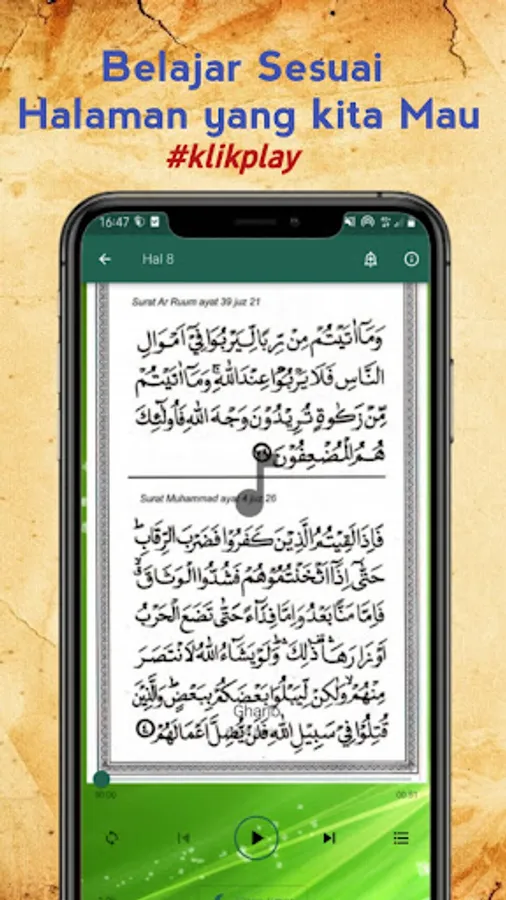 Belajar Sesuai
Halaman yang kita Mau
#klikplay
16:47
Hal 8
Surat Ar Ruum ayat 39 juz 21
وَمَآ اٰتَيْتُمْ مِّنْ رِّبًا لِّيَرْبُوَا۟ فِيْٓ اَمْوَالِ
النَّاسِ فَلَا يَرْبُوْا عِنْدَ اللّٰهِ ۚ وَمَآ اٰتَيْتُمْ
مِّنْ زَكٰوةٍ تُرِيْدُوْنَ وَجْهَ اللّٰهِ فَاُولٰٓئِكَ
هُمُ الْمُضْعِفُوْنَ
Surat Muhammad ayat 4 juz 26
فَاِذَا لَقِيْتُمُ الَّذِيْنَ كَفَرُوْا فَضَرْبَ الرِّقَابِ ۗ
حَتّٰىٓ اِذَآ اَثْخَنْتُمُوْهُمْ فَشُدُّوا الْوَثَاقَ ۙ
فَاِمَّا مَنًّا بَعْدُ وَاِمَّا فِدَاۤءً حَتّٰى تَضَعَ الْحَرْبُ
اَوْزَارَهَا ۛ ذٰلِكَ ۛ وَلَوْ يَشَاۤءُ اللّٰهُ لَانْتَصَرَ
مِنْهُمْ ۙ وَلٰكِنْ لِّيَبْلُوَا۟ بَعْضَكُمْ بِبَعْضٍ ۗ وَالَّذِيْنَ
Gharib
قُتِلُوْا فِيْ سَبِيْلِ اللّٰهِ فَلَنْ يُّضِلَّ اَعْمَالَهُمْ ٤
00:00
00:51